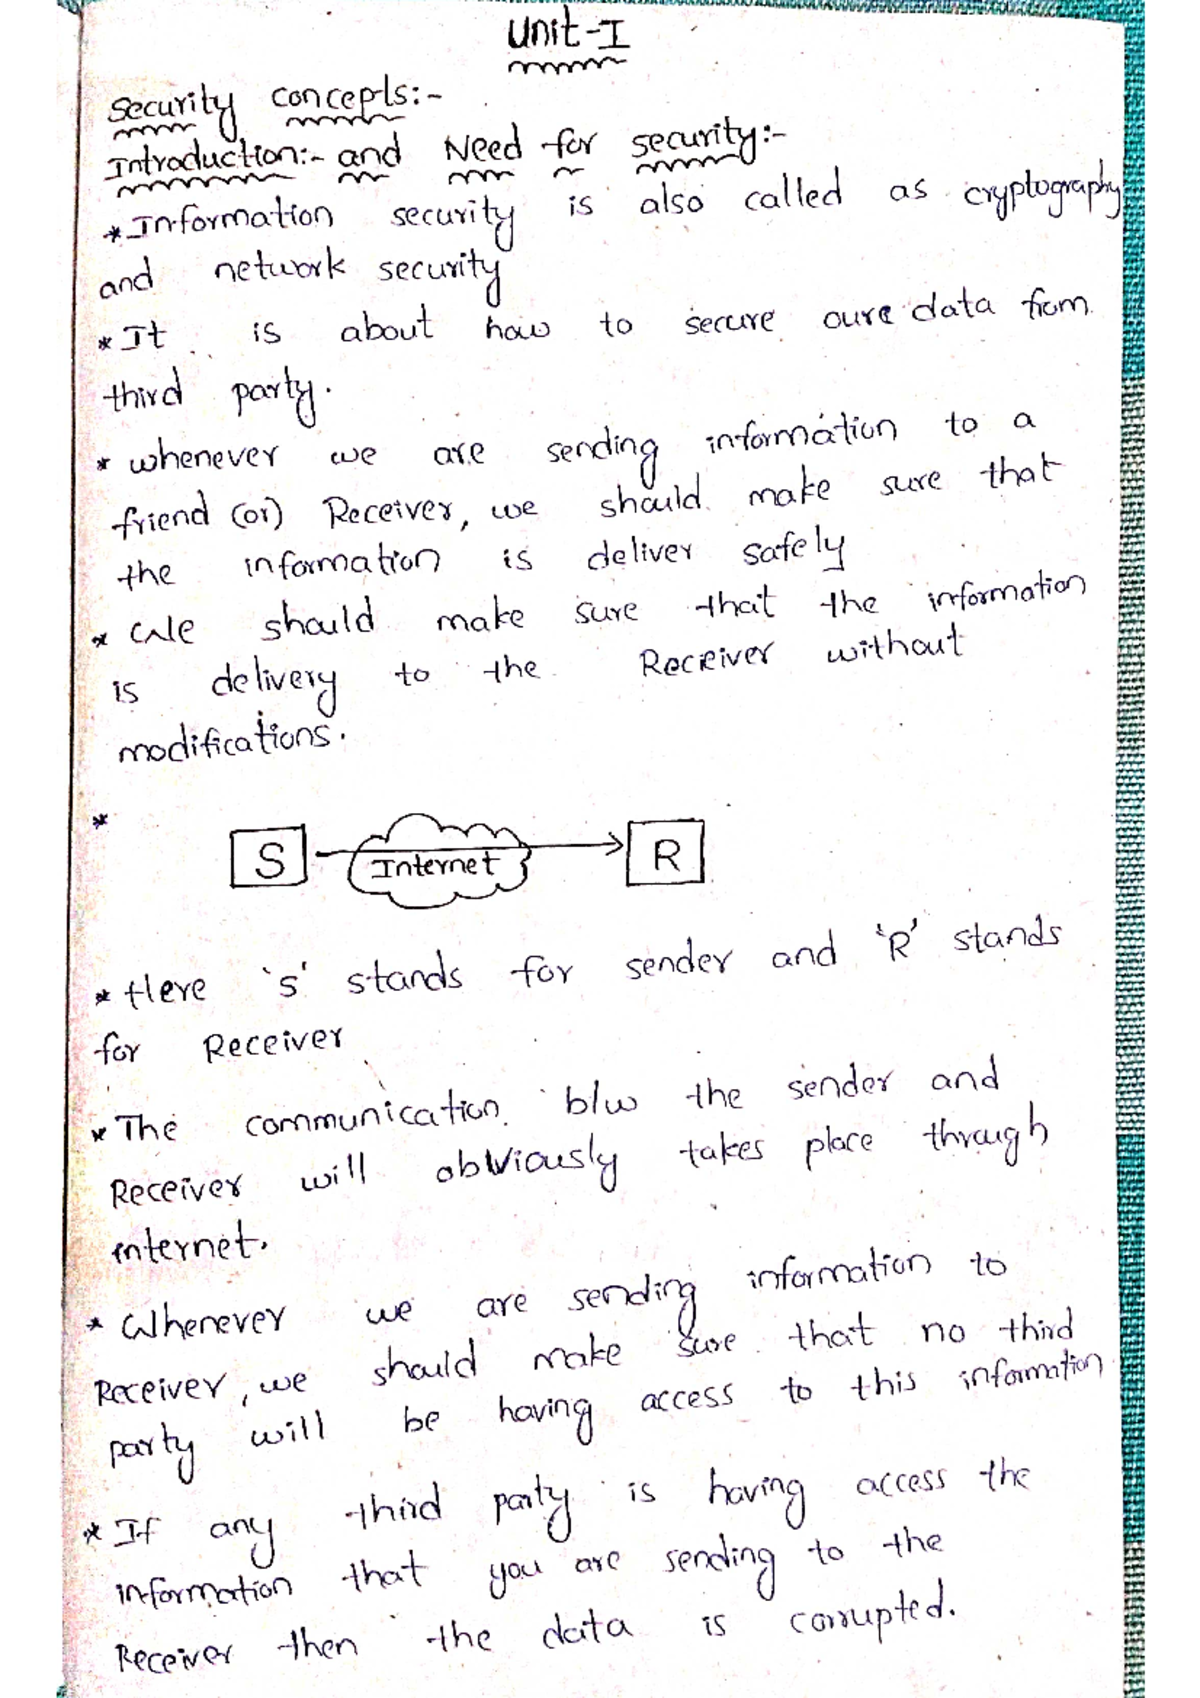 Unit-I
Security Concepts:-
Introduction:- and Need for security:-
* Information security is also called as cryptography
and network security
* It is about how to secure oure data from
third party.
* whenever we are sending information to a
friend (or) Receiver, we should make sure that
the information is deliver safely
* We should make sure that the information
is delivery to the Receiver without
modifications.
*
S Internet R
* Here 's' stands for sender and 'R' stands
for Receiver
* The communication b/w the sender and
Receiver will obviously takes place through
internet.
* Whenever we are sending information to
Receiver, we should make sure that no third
party will be having access to this information
* If any third party is having access the
information that you are sending to the
Receiver then the data is corrupted.